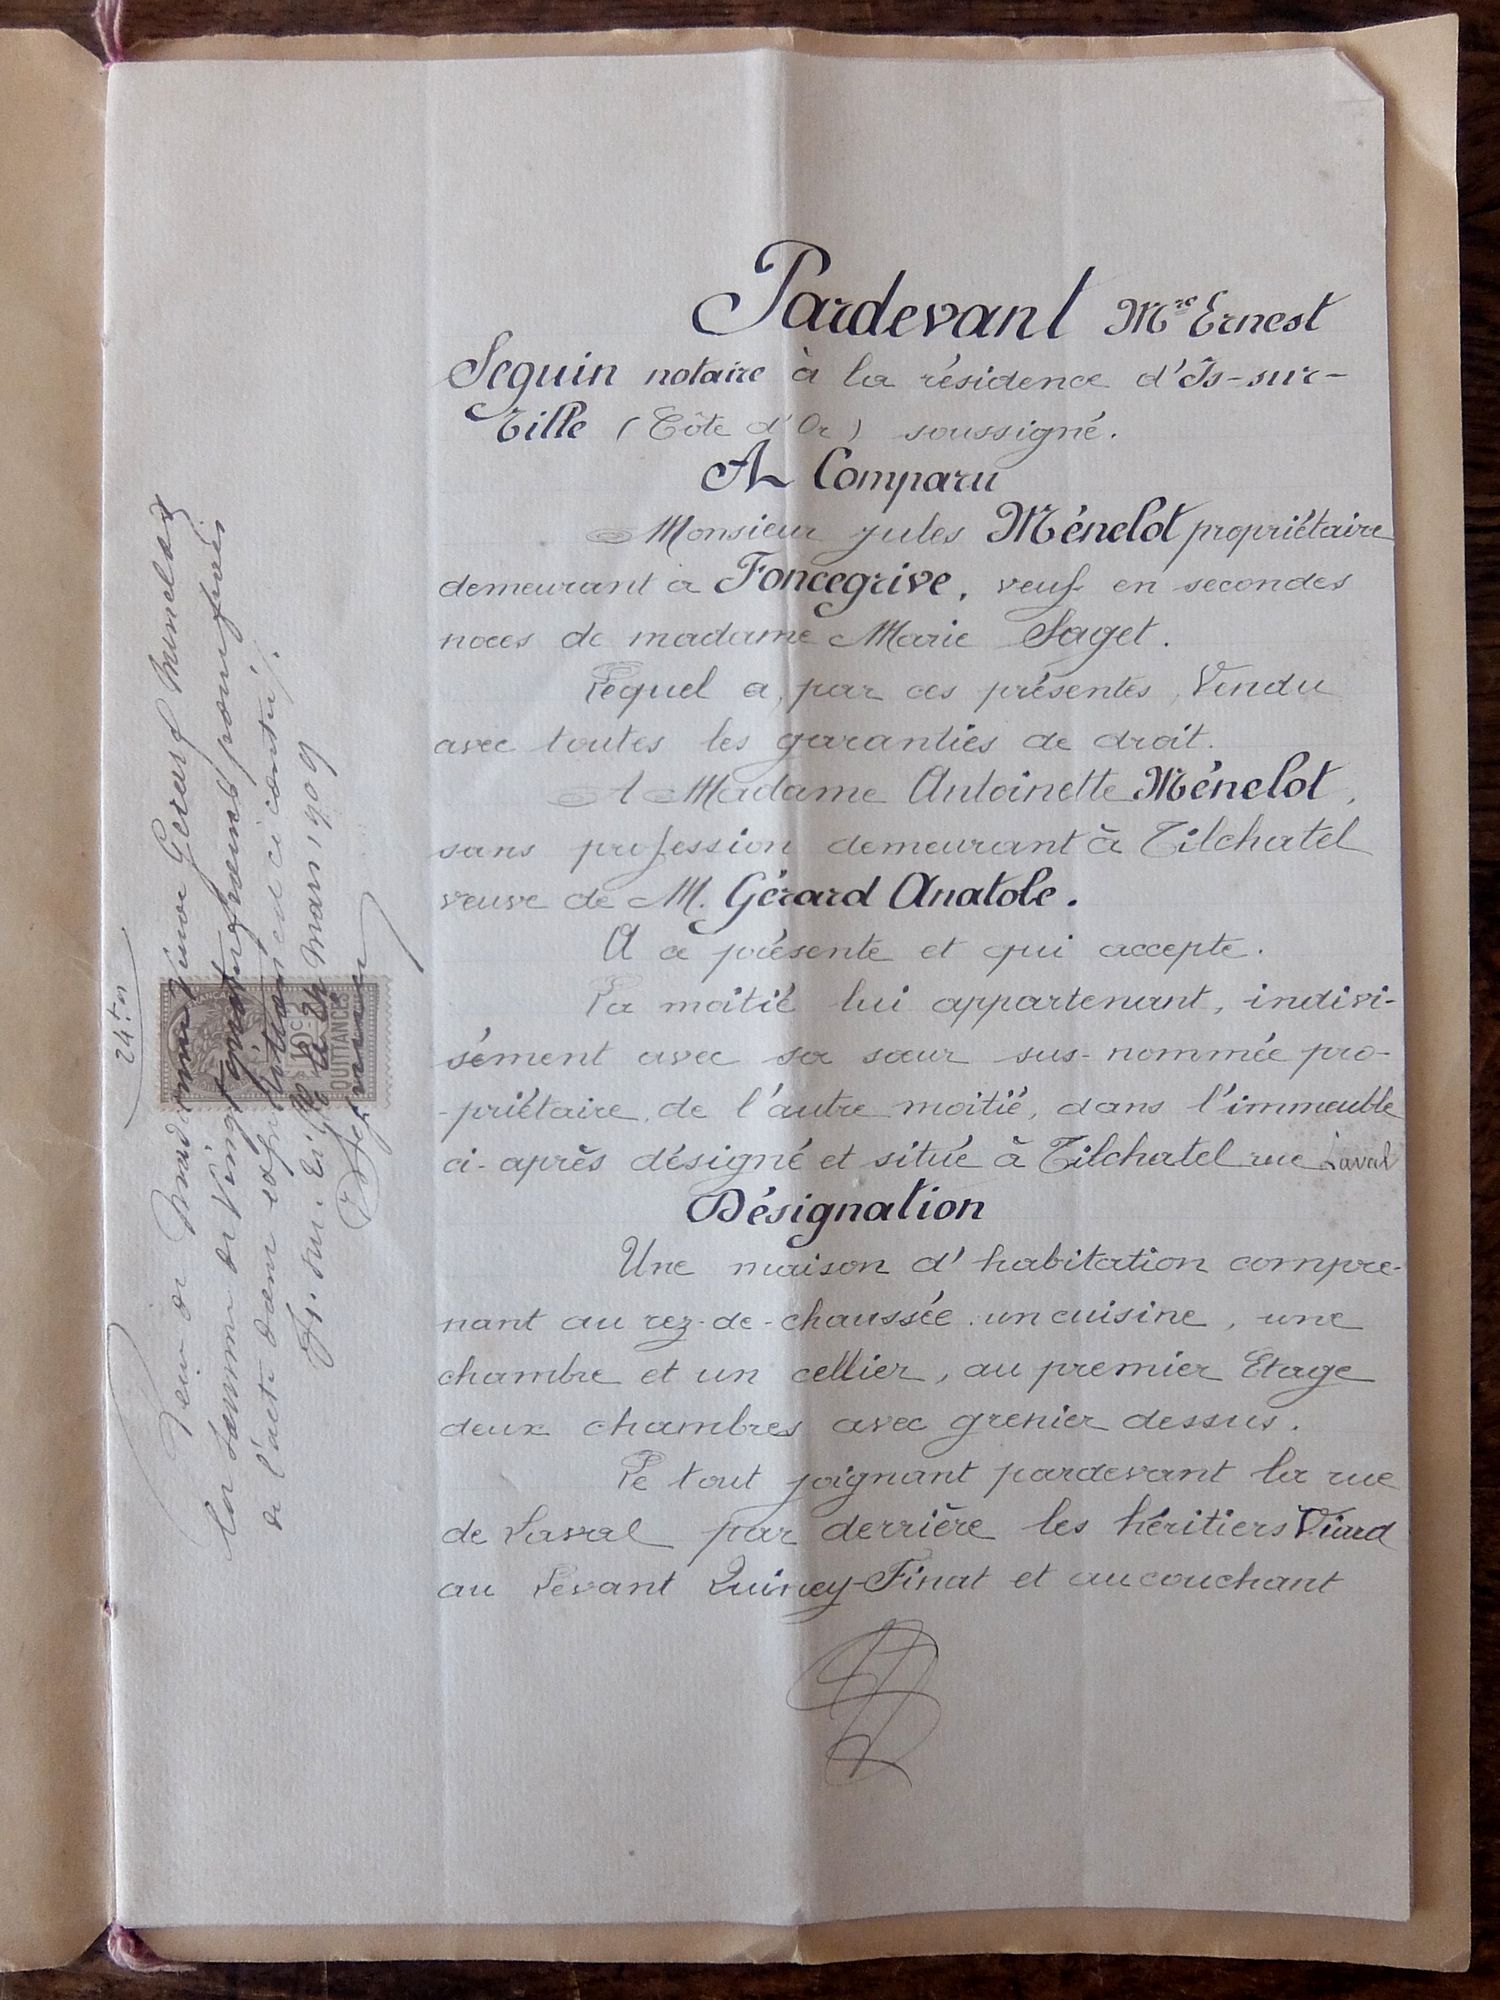 Pardevant Mre Ernest
Seguin notaire à la résidence d'Is-sur-
Tille (Côte d'Or) soussigné.
A Comparu
Monsieur Jules Ménelot propriétaire
demeurant à Foncegrive, veuf en secondes
noces de madame Marie Saget.
Lequel a, par ces présentes, Vendu
avec toutes les garanties de droit.
A Madame Antoinette Ménelot,
sans profession demeurant à Tilchatel
veuve de M. Gérard Anatole.
A ce présente et qui accepte.
La moitié lui appartenant, indivi-
sément avec sa sœur sus-nommée pro-
-priétaire de l'autre moitié, dans l'immeuble
ci-après désigné et situé à Tilchatel rue Laval
Désignation
Une maison d'habitation compre-
nant au rez-de-chaussée un cuisine, une
chambre et un cellier, au premier Etage
deux chambres avec grenier dessus.
Le tout joignant pardevant la rue
de Laval par derrière les héritiers Viard
au Levant Quincy-Finat et au couchant
Reçu de Madame Veuve Gérard
la somme de Vingt quatre francs pour frais
de l'acte dont expédition est ci contre.
Is-sur-Tille le 24 Mars 1909
Seguin
24
10c
QUITTANCES